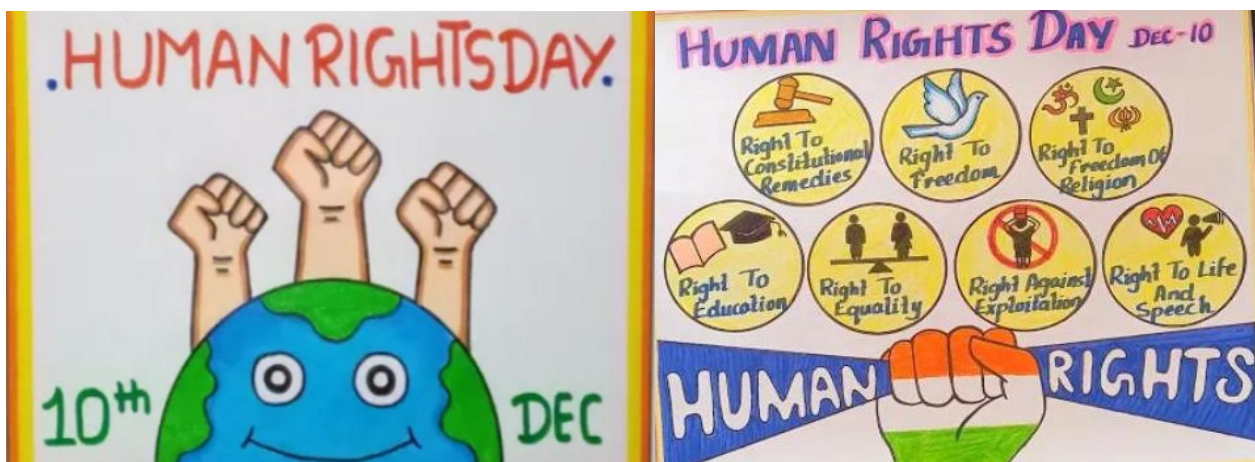 .HUMAN RIGHTS DAY.
10th DEC
HUMAN RIGHTS DAY DEC-10
Right To
Constitutional
Remedies
Right To
Freedom
Right To
Freedom Of
Religion
Right To
Education
Right To
Equality
Right Against
Exploitation
Right To Life
And
Speech
HUMAN RIGHTS